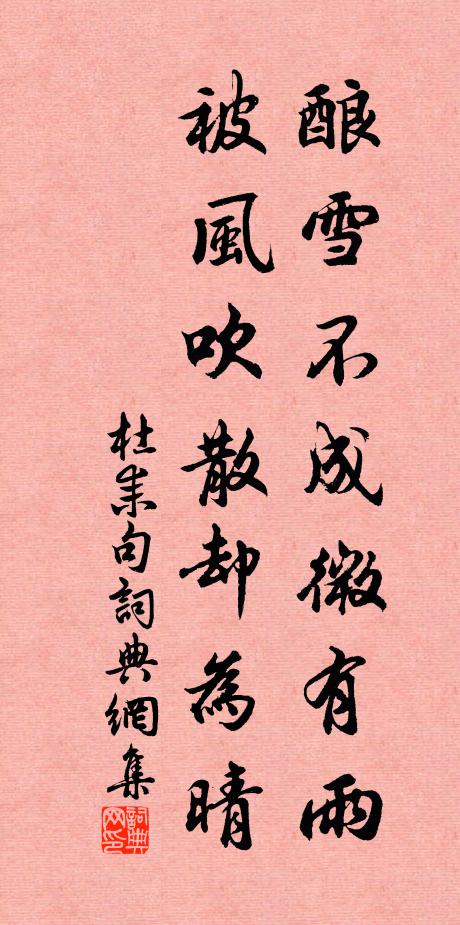 酿雪不成微有雨
被風吹散却為晴
杜耒句詞典網集
詞典网印